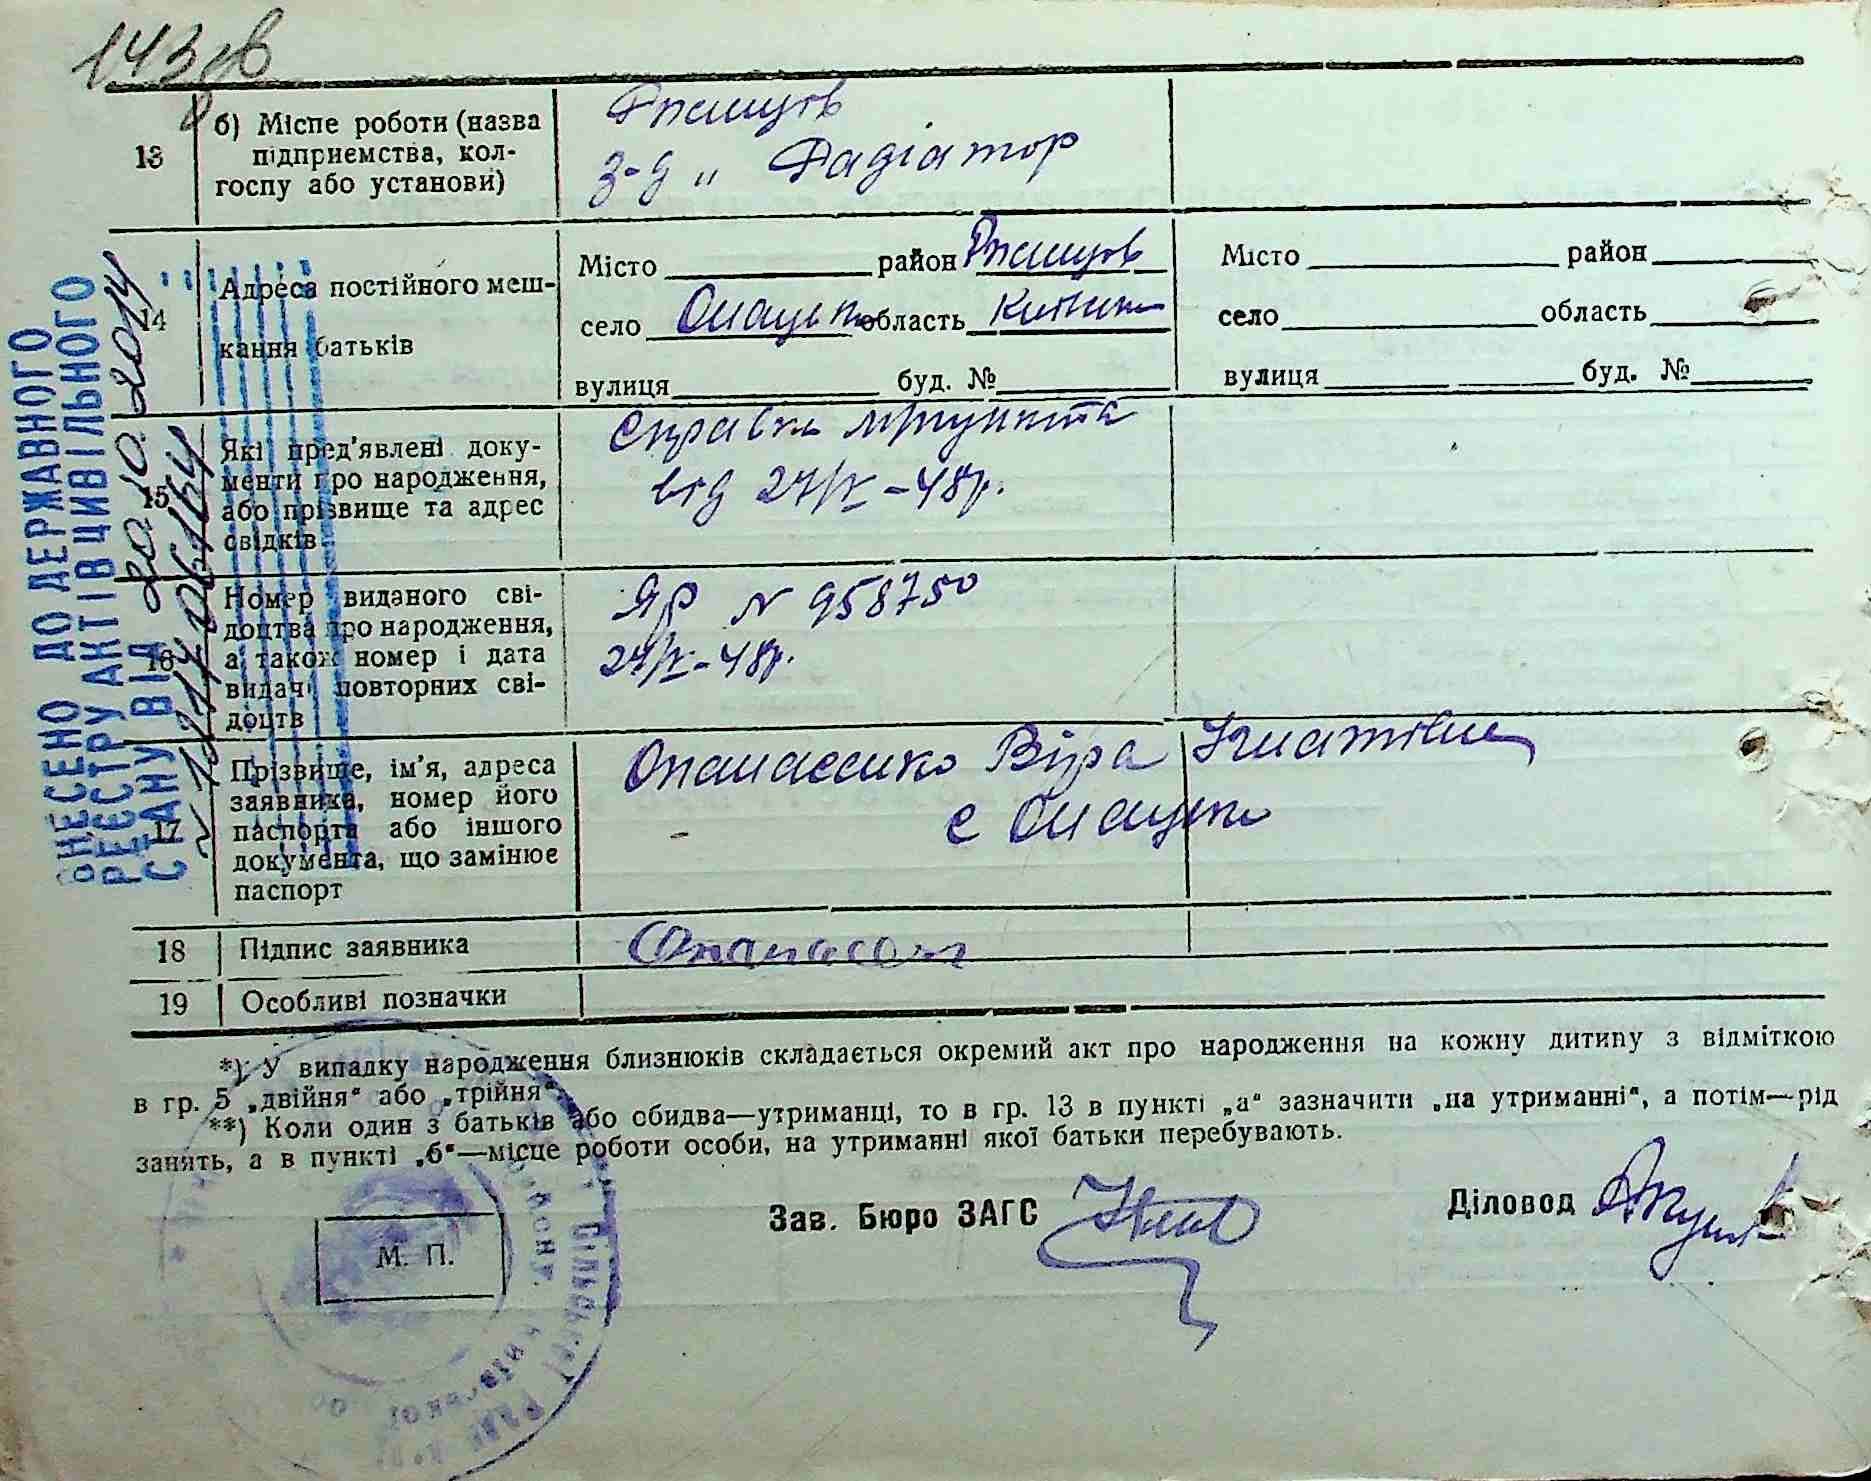 143 зв
13
б) Місце роботи (назва
підприємства, кол-
госпу або установи)
Ржищів
з-д „ Радіатор
14
Адреса постійного меш-
кання батьків
Місто район Ржищів
село область Київськ
вулиця буд. №
Місто район
село область
вулиця буд. №
15
Які пред'явлені доку-
менти про народження,
або прізвище та адрес
свідків
Справка
від 24/IX-48р.
16
Номер виданого сві-
доцтва про народження,
а також номер і дата
видачі повторних сві-
доцтв
ЯР N 958750
24/IX-48р.
17
Прізвище, ім'я, адреса
заявника, номер його
паспорта або іншого
документа, що замінює
паспорт
Опанасенко Віра Ігнатівна
с
18 Підпис заявника
19 Особливі позначки
ВНЕСЕНО ДО ДЕРЖАВНОГО
РЕЄСТРУ АКТІВ ЦИВІЛЬНОГО
СТАНУ ВІД 20.10.2014
*) У випадку народження близнюків складається окремий акт про народження на кожну дитину з відміткою
в гр. 5 „двійня“ або „трійня“.
**) Коли один з батьків або обидва—утриманці, то в гр. 13 в пункті „а“ зазначити „на утриманні“, а потім—рід
занять, а в пункті „б“—місце роботи особи, на утриманні якої батьки перебувають.
Зав. Бюро ЗАГС
Діловод
М. П.